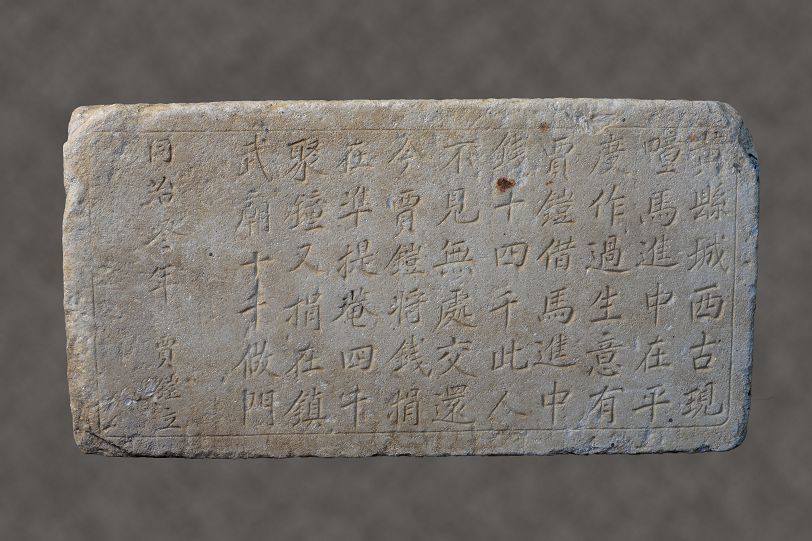 黃縣城西古現
疃馬進中在平
度作過生意有
賈鎧借馬進中
錢十四千此人
不見無處交還
今賈鎧將錢捐
在準提菴四千
聚鐘又捐在鎮
武廟十千做門
同治叁年 賈鎧立